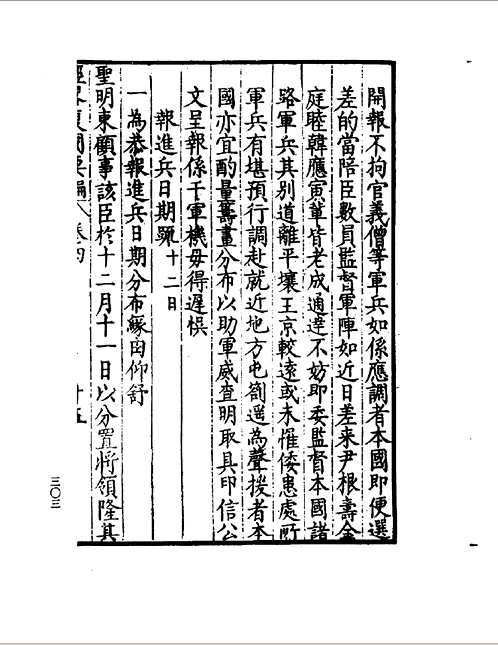 開報不拘官義僧等軍兵如係應調者本國即便選
差的當陪臣數員監督軍陣如近日差來尹根壽金
庭睦韓應寅輩皆老成通達不妨即委監督本國諸
路軍兵其別道離平壤王京較遠或未惟倭患處所
軍兵有堪預行調赴就近地方屯劄遥為聲援者本
國亦宜酌量籌畫分布以助軍威查明取具印信公
文呈報係干軍機毋得遲悞
報進兵日期題十二日
一為恭報進兵日期分布緣由仰舒
聖明東顧事該臣於十二月十一日以分置將領隆其
經畧復國要編 卷四 十五
三〇三